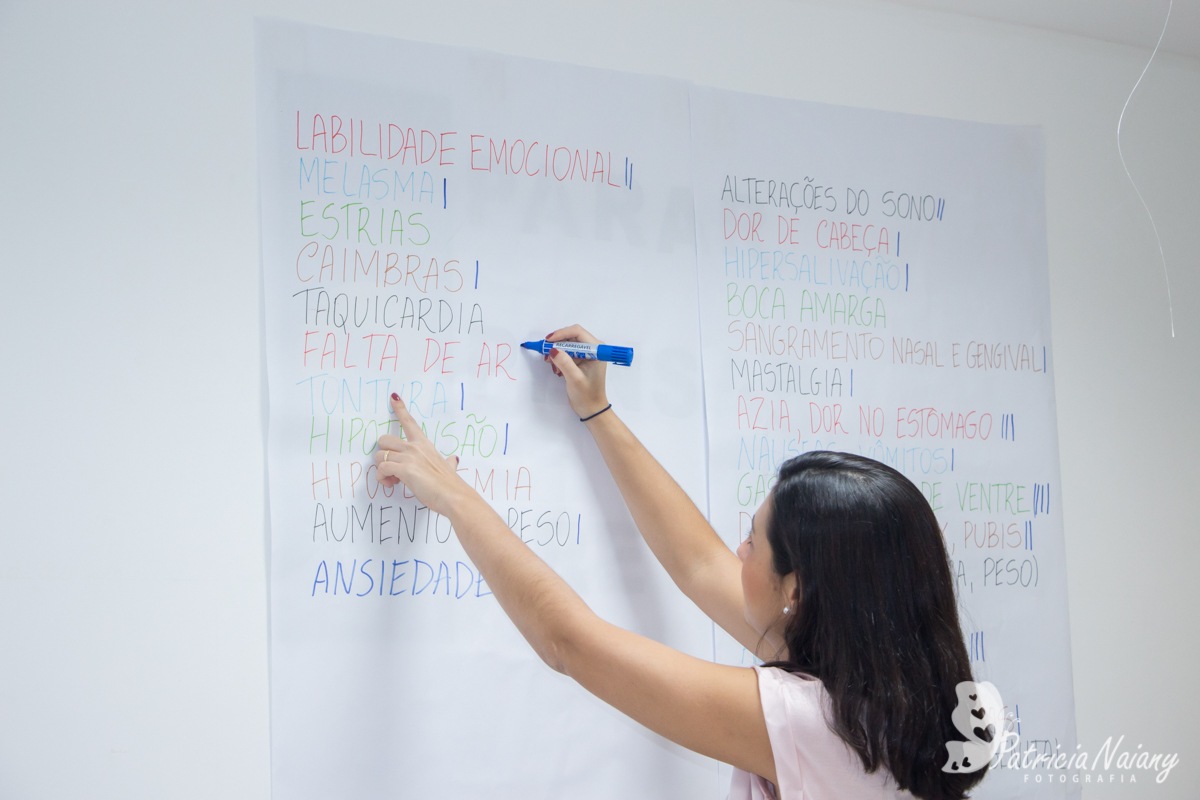 LABILIDADE EMOCIONAL
MELASMA
ESTRIAS
CAIMBRAS
TAQUICARDIA
FALTA DE AR
TONTURA
HIPOTENSÃO
AUMENTO PESO
ANSIEDADE
ALTERAÇÕES DO SONO
DOR DE CABEÇA
HIPERSALIVAÇÃO
BOCA AMARGA
SANGRAMENTO NASAL E GENGIVAL
MASTALGIA
AZIA, DOR NO ESTÔMAGO
NAUSEAS, VÔMITOS
DE VENTRE
, PUBIS
, PESO)
RECARREGÁVEL
Patricia Naiany
FOTOGRAFIA